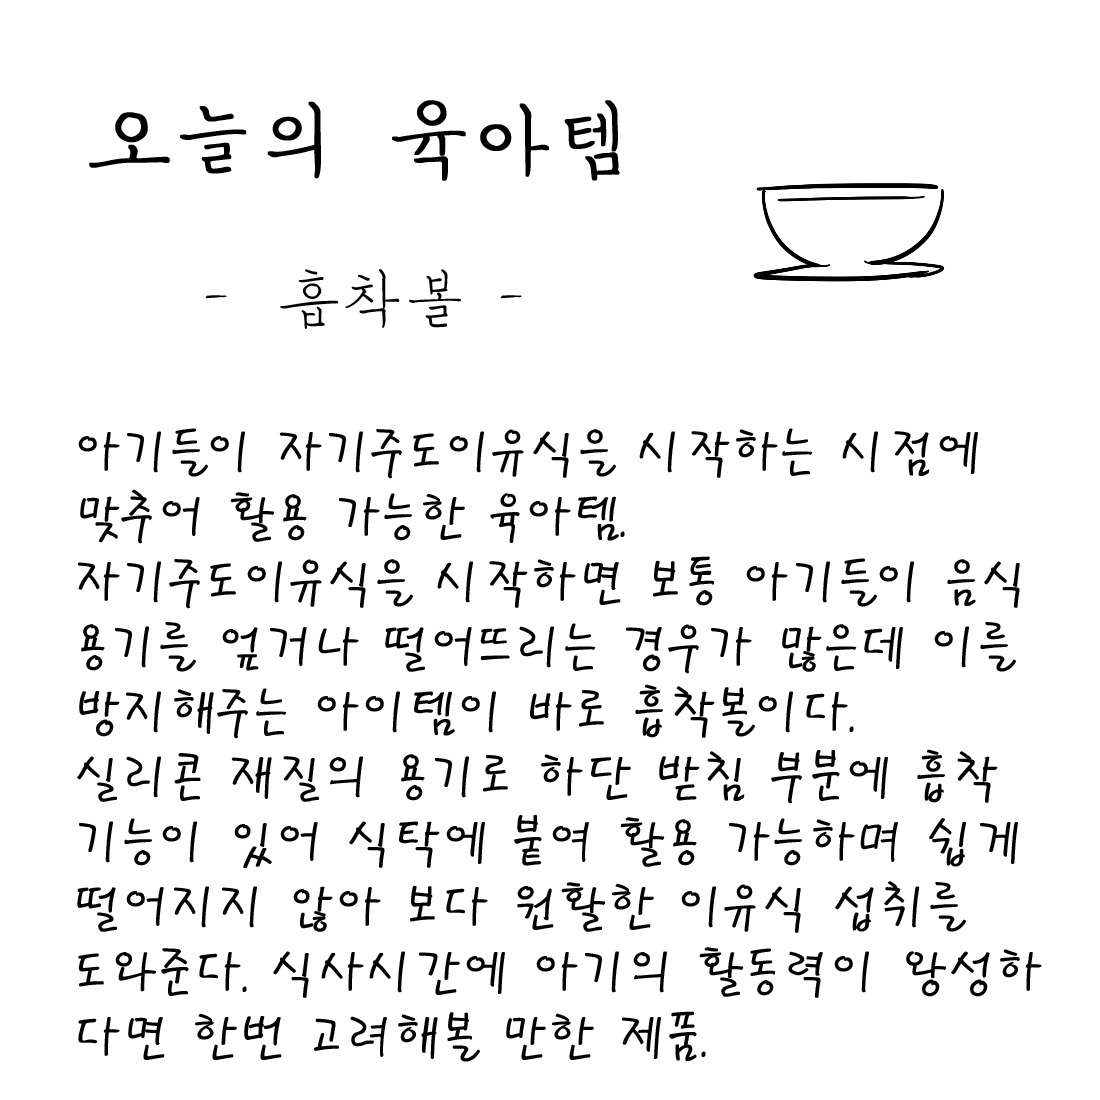 오늘의 육아템
- 흡착볼 -
아기들이 자기주도이유식을 시작하는 시점에
맞추어 활용 가능한 육아템.
자기주도이유식을 시작하면 보통 아기들이 음식
용기를 엎거나 떨어뜨리는 경우가 많은데 이를
방지해주는 아이템이 바로 흡착볼이다.
실리콘 재질의 용기로 하단 받침 부분에 흡착
기능이 있어 식탁에 붙여 활용 가능하며 쉽게
떨어지지 않아 보다 원활한 이유식 섭취를
도와준다. 식사시간에 아기의 활동력이 왕성하
다면 한번 고려해볼 만한 제품.